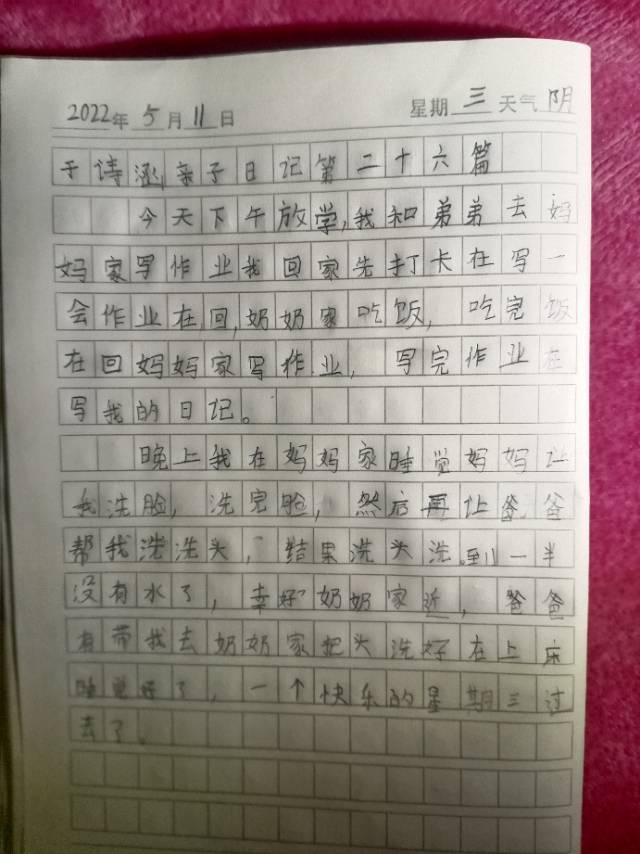 2022年5月11日 星期三天气阴
于诗涵亲子日记第二十六篇
今天下午放学,我和弟弟去妈
妈家写作业我回家先打卡在写一
会作业在回,奶奶家吃饭,吃完饭
在回妈妈家写作业,写完作业在
写我的日记。
晚上我在妈妈家睡觉妈妈让
我洗脸,洗完脸,然后再让爸爸
帮我洗洗头,结果洗头洗到一半
没有水了,幸好奶奶家近,爸爸
有带我去奶奶家把头洗好在上床
睡觉好了,一个快乐的星期三过
去了。